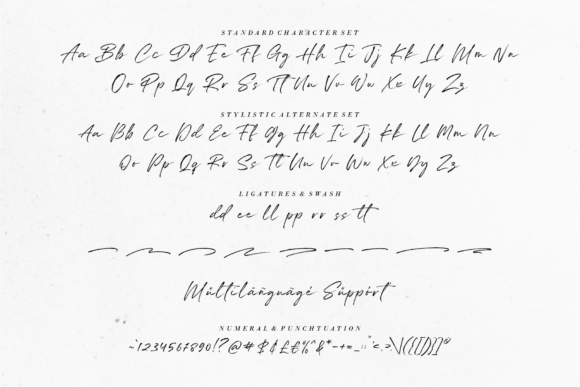 STANDARD CHARACTER SET
Aa Bb Cc Dd Ee Ff Gg Hh Ii Jj Kk Ll Mm Nn
Oo Pp Qq Rr Ss Tt Uu Vv Ww Xx Yy Zz
STYLISTIC ALTERNATE SET
Aa Bb Cc Dd Ee Ff Gg Hh Ii Jj Kk Ll Mm Nn
Oo Pp Qq Rr Ss Tt Uu Vv Ww Xx Yy Zz
LIGATURES & SWASH
dd ee ll pp rr ss tt
Mültilàñguàgé Süppórt
NUMERAL & PUNCHTUATION
1234567890!?@#$¢£€%^&*-+=_:;"<,>.\|/({[]})